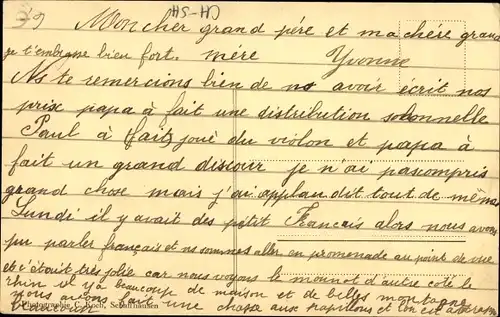 CH-SH
Mon cher grand pére et ma chére grand
je t'embrasse bien fort. mére Yvonne
Ns te remercions bien de ns avoir écrit nos
prix papa à fait une distribution solonnelle
Paul à fait joué du violon et papa à
fait un grand discour je n'ai pas compris
grand chose mais j'ai applaudit tout de même
Lundi il y avait des pétit Francais alors nous avons
pu parler français et ns sommes aller en promenade au point de vue
et c'était très jolie car nous voyons le d'autre coté le
rhin il y a beaucoup de maison et de belles montagne
nous avons fait une chasse aux papillons et on est
Photographie C. Koch, Schaffhausen